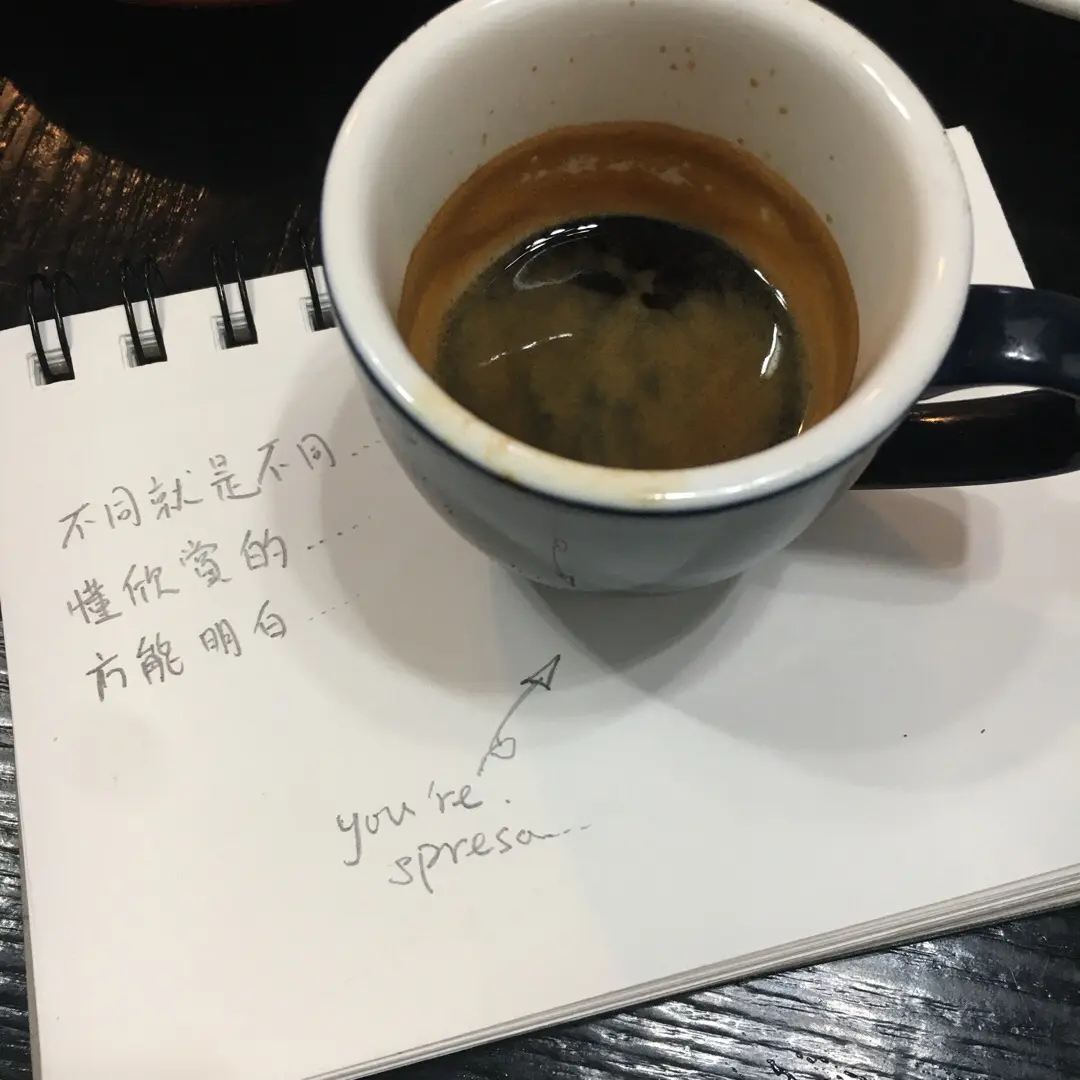 不同就是不同...
懂欣赏的....
方能明白.....
you're.
spresa...